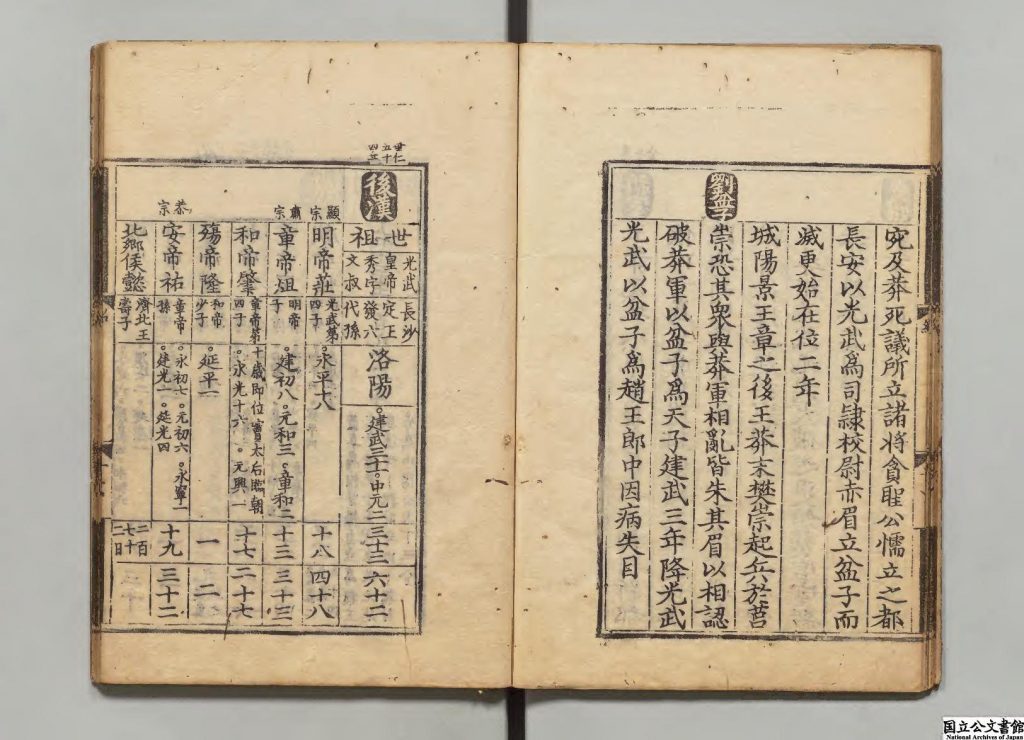 宛及莽死議所立諸將貪聖公懦立之都
長安以光武爲司隷校尉赤眉立盆子而
滅更始在位二年
劉盆子
城陽景王章之後王莽末樊崇起兵於莒
崇恐其衆與莽軍相亂皆朱其眉以相認
破莽軍以盆子爲天子建武三年降光武
光武以盆子爲趙王郎中因病失目
後漢
世祖
光武皇帝秀字文叔
長沙定王發六代孫
洛陽
建武三十一 中元二
三十三
六十二
顯宗
明帝莊
光武第四子
永平十八
十八
四十八
肅宗
章帝炟
明帝子
建初八 元和三 章和二
十三
三十三
和帝肇
章帝第四子
十歲即位竇太后臨朝
永光十六 元興一
十七
二十七
殤帝隆
和帝少子
延平一
一
二
恭宗
安帝祐
章帝孫
永初七 元初六 永寧一
建光一 延光四
十九
三十二
北鄉侯懿
濟北王壽子
二百七十二日
国立公文書館
National Archives of Japan